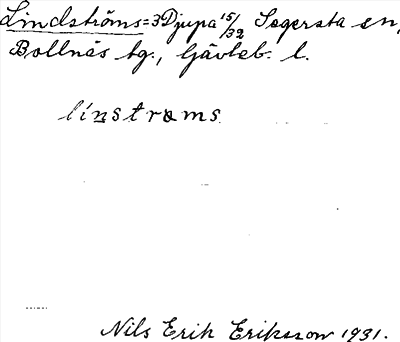 Lindströms=3 Djupa 15/32 Segersta sn,
Bollnäs tg., Gävleb. l.
línstrams
Nils Erik Eriksson 1931.